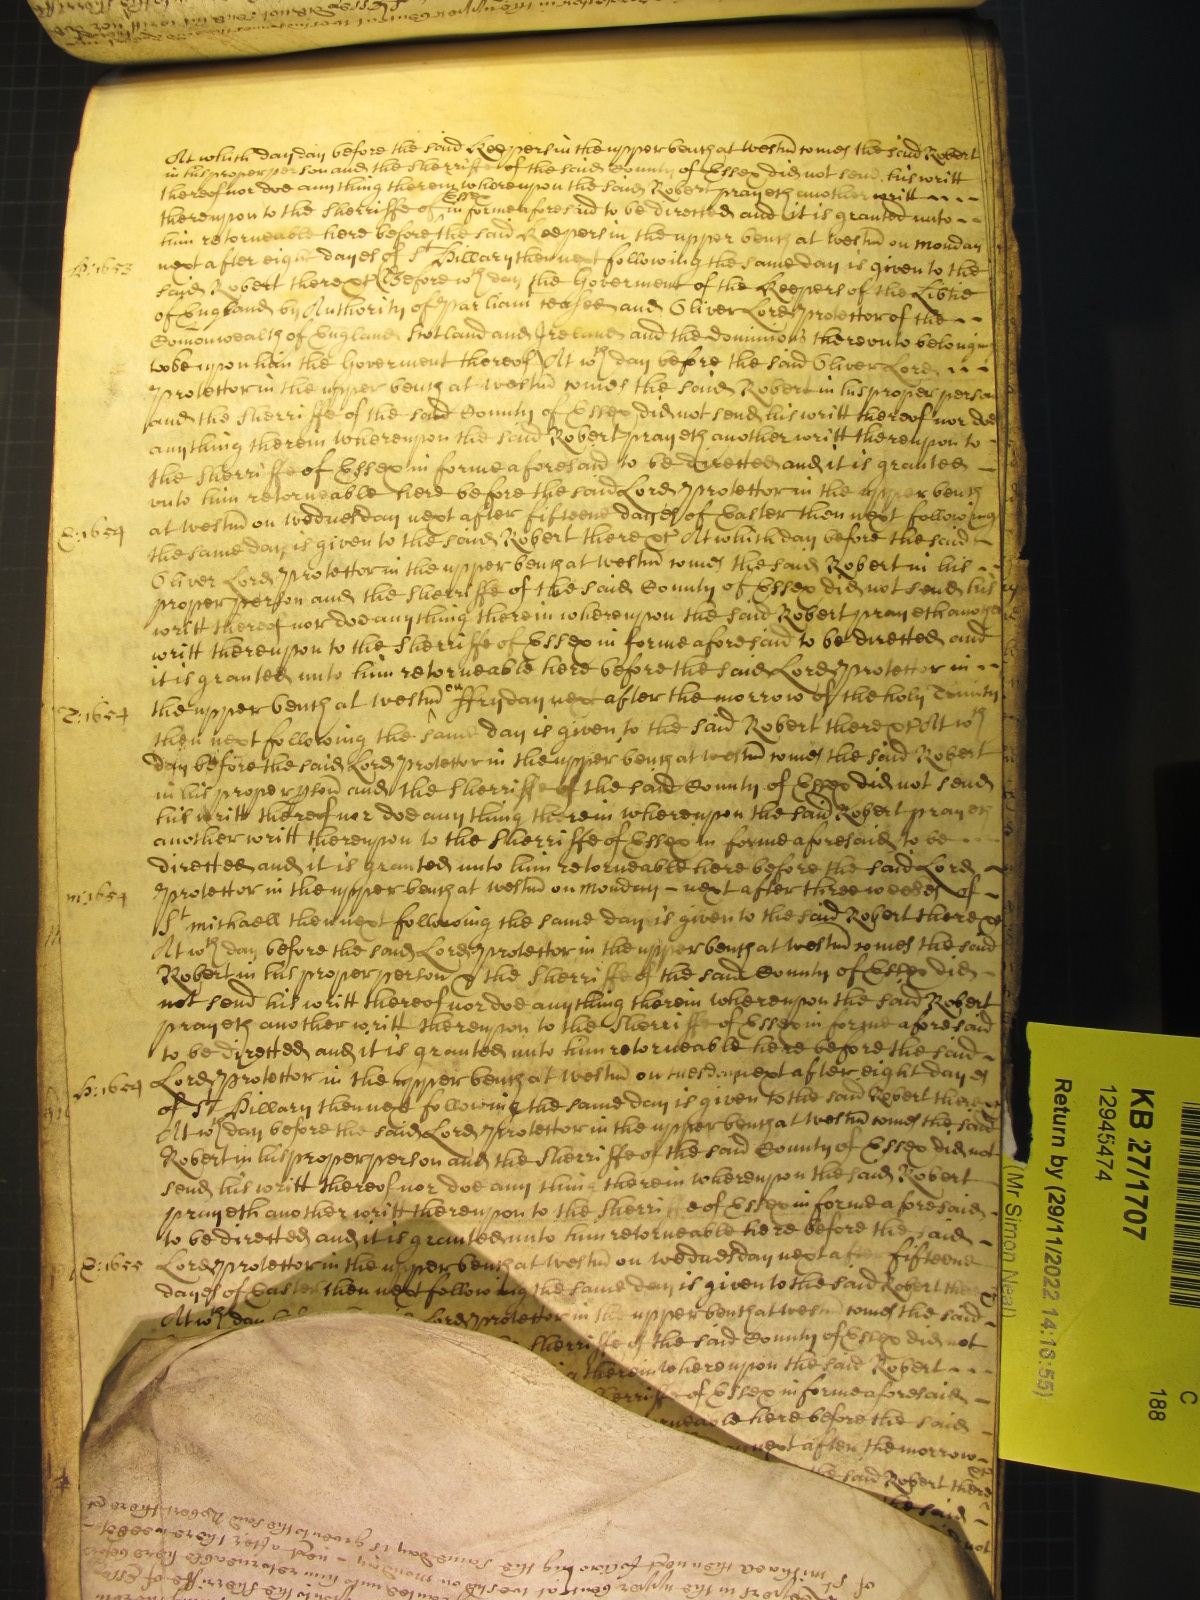 At which day day before the said Keepers in the upper bench at Westm̃ comes the said Robert
in his proper person and the Sherriffe of the said County of Essex did not send his writt
thereof nor doe any thing therein whereupon the said Robert prayeth another writt
thereupon to the Sherriffe of Essex in forme aforesaid to be directed and it is granted unto
him retorneable here before the said Keepers in the upper bench at Westm̃ on Monday
H: 1653
next after eight dayes of St Hillary then next following the same day is given to the
said Robert there &c Before wch day the Goverment of the Keepers of the Libtie
of England by Authority of Parliam ceased and Oliver Lord Protector of the
Comonwealth of England Scotland and Ireland and the dominions thereunto belonging
tooke upon him the Goverment thereof At wch day before the said Oliver Lord
Protector in the upper bench at Westm̃ comes the said Robert in his proper person
and the Sherriffe of the said County of Essex did not send his writt thereof nor doe
any thing therein whereupon the said Robert prayeth another writt thereupon to
the Sherriffe of Essex in forme aforesaid to be directed and it is granted
unto him retorneable here before the said Lord Protector in the upper bench
E: 1654
at Westm̃ on Wednesday next after fifteene dayes of Easter then next following
the same day is given to the said Robert there &c At which day before the said
Oliver Lord Protector in the upper bench at Westm̃ comes the said Robert in his
proper person and the Sherriffe of the said County of Essex did not send his
writt thereof nor doe any thing therein whereupon the said Robert prayeth another
writt thereupon to the Sherriffe of Essex in forme aforesaid to be directed and
it is granted unto him retorneable here before the said Lord Protector in
T: 1654
the upper bench at Westm̃ on ffryday next after the morrow of the holy Trinity
then next following the same day is given to the said Robert there &c At wch
day before the said Lord Protector in the upper bench at Westm̃ comes the said Robert
in his proper pson and the Sherriffe of the said County of Essex did not send
his writt thereof nor doe any thing therein whereupon the said Robert prayeth
another writt thereupon to the Sherriffe of Essex in forme aforesaid to be
directed and it is granted unto him retorneable here before the said Lord
M: 1654
Protector in the upper bench at Westm̃ on Monday next after three weekes of
St Michaell then next following the same day is given to the said Robert there &c
At wch day before the said Lord Protector in the upper bench at Westm̃ comes the said
Robert in his proper person & the Sherriffe of the said County of Essex did
not send his writt thereof nor doe any thing therein whereupon the said Robert
prayeth another writt thereupon to the Sherriffe of Essex in forme aforesaid
to be directed and it is granted unto him retorneable here before the said
H: 1654
Lord Protector in the upper bench at Westm̃ on tuesday next after eight dayes
of St Hillary then next following the same day is given to the said Robert there &c
At wch day before the said Lord Protector in the upper bench at Westm̃ comes the said
Robert in his proper person and the Sherriffe of the said County of Essex did not
send his writt thereof nor doe any thing therein whereupon the said Robert
prayeth another writt thereupon to the Sherriffe of Essex in forme aforesaid
to be directed and it is granted unto him retorneable here before the said
E: 1655
Lord Protector in the upper bench at Westm̃ on Wednesday next after fifteene
dayes of Easter then next following the same day is given to the said Robert there
At wch day Lord Protector in the upper bench at Westm̃ comes the said
Sherriffe of the said County of Essex did not
therein whereupon the said Robert
Sherriffe of Essex in forme aforesaid
here before the said
next after the morrow
the said Robert there
the said
not
KB 27/1707
12945474
Return by (29/11/2022 14:16:55)
(Mr Simon Neal)
C
188
of
St Michaell then next following the same day is given to the said Robert there &c
Protector in the upper bench at Westm̃ on Monday next after three weekes